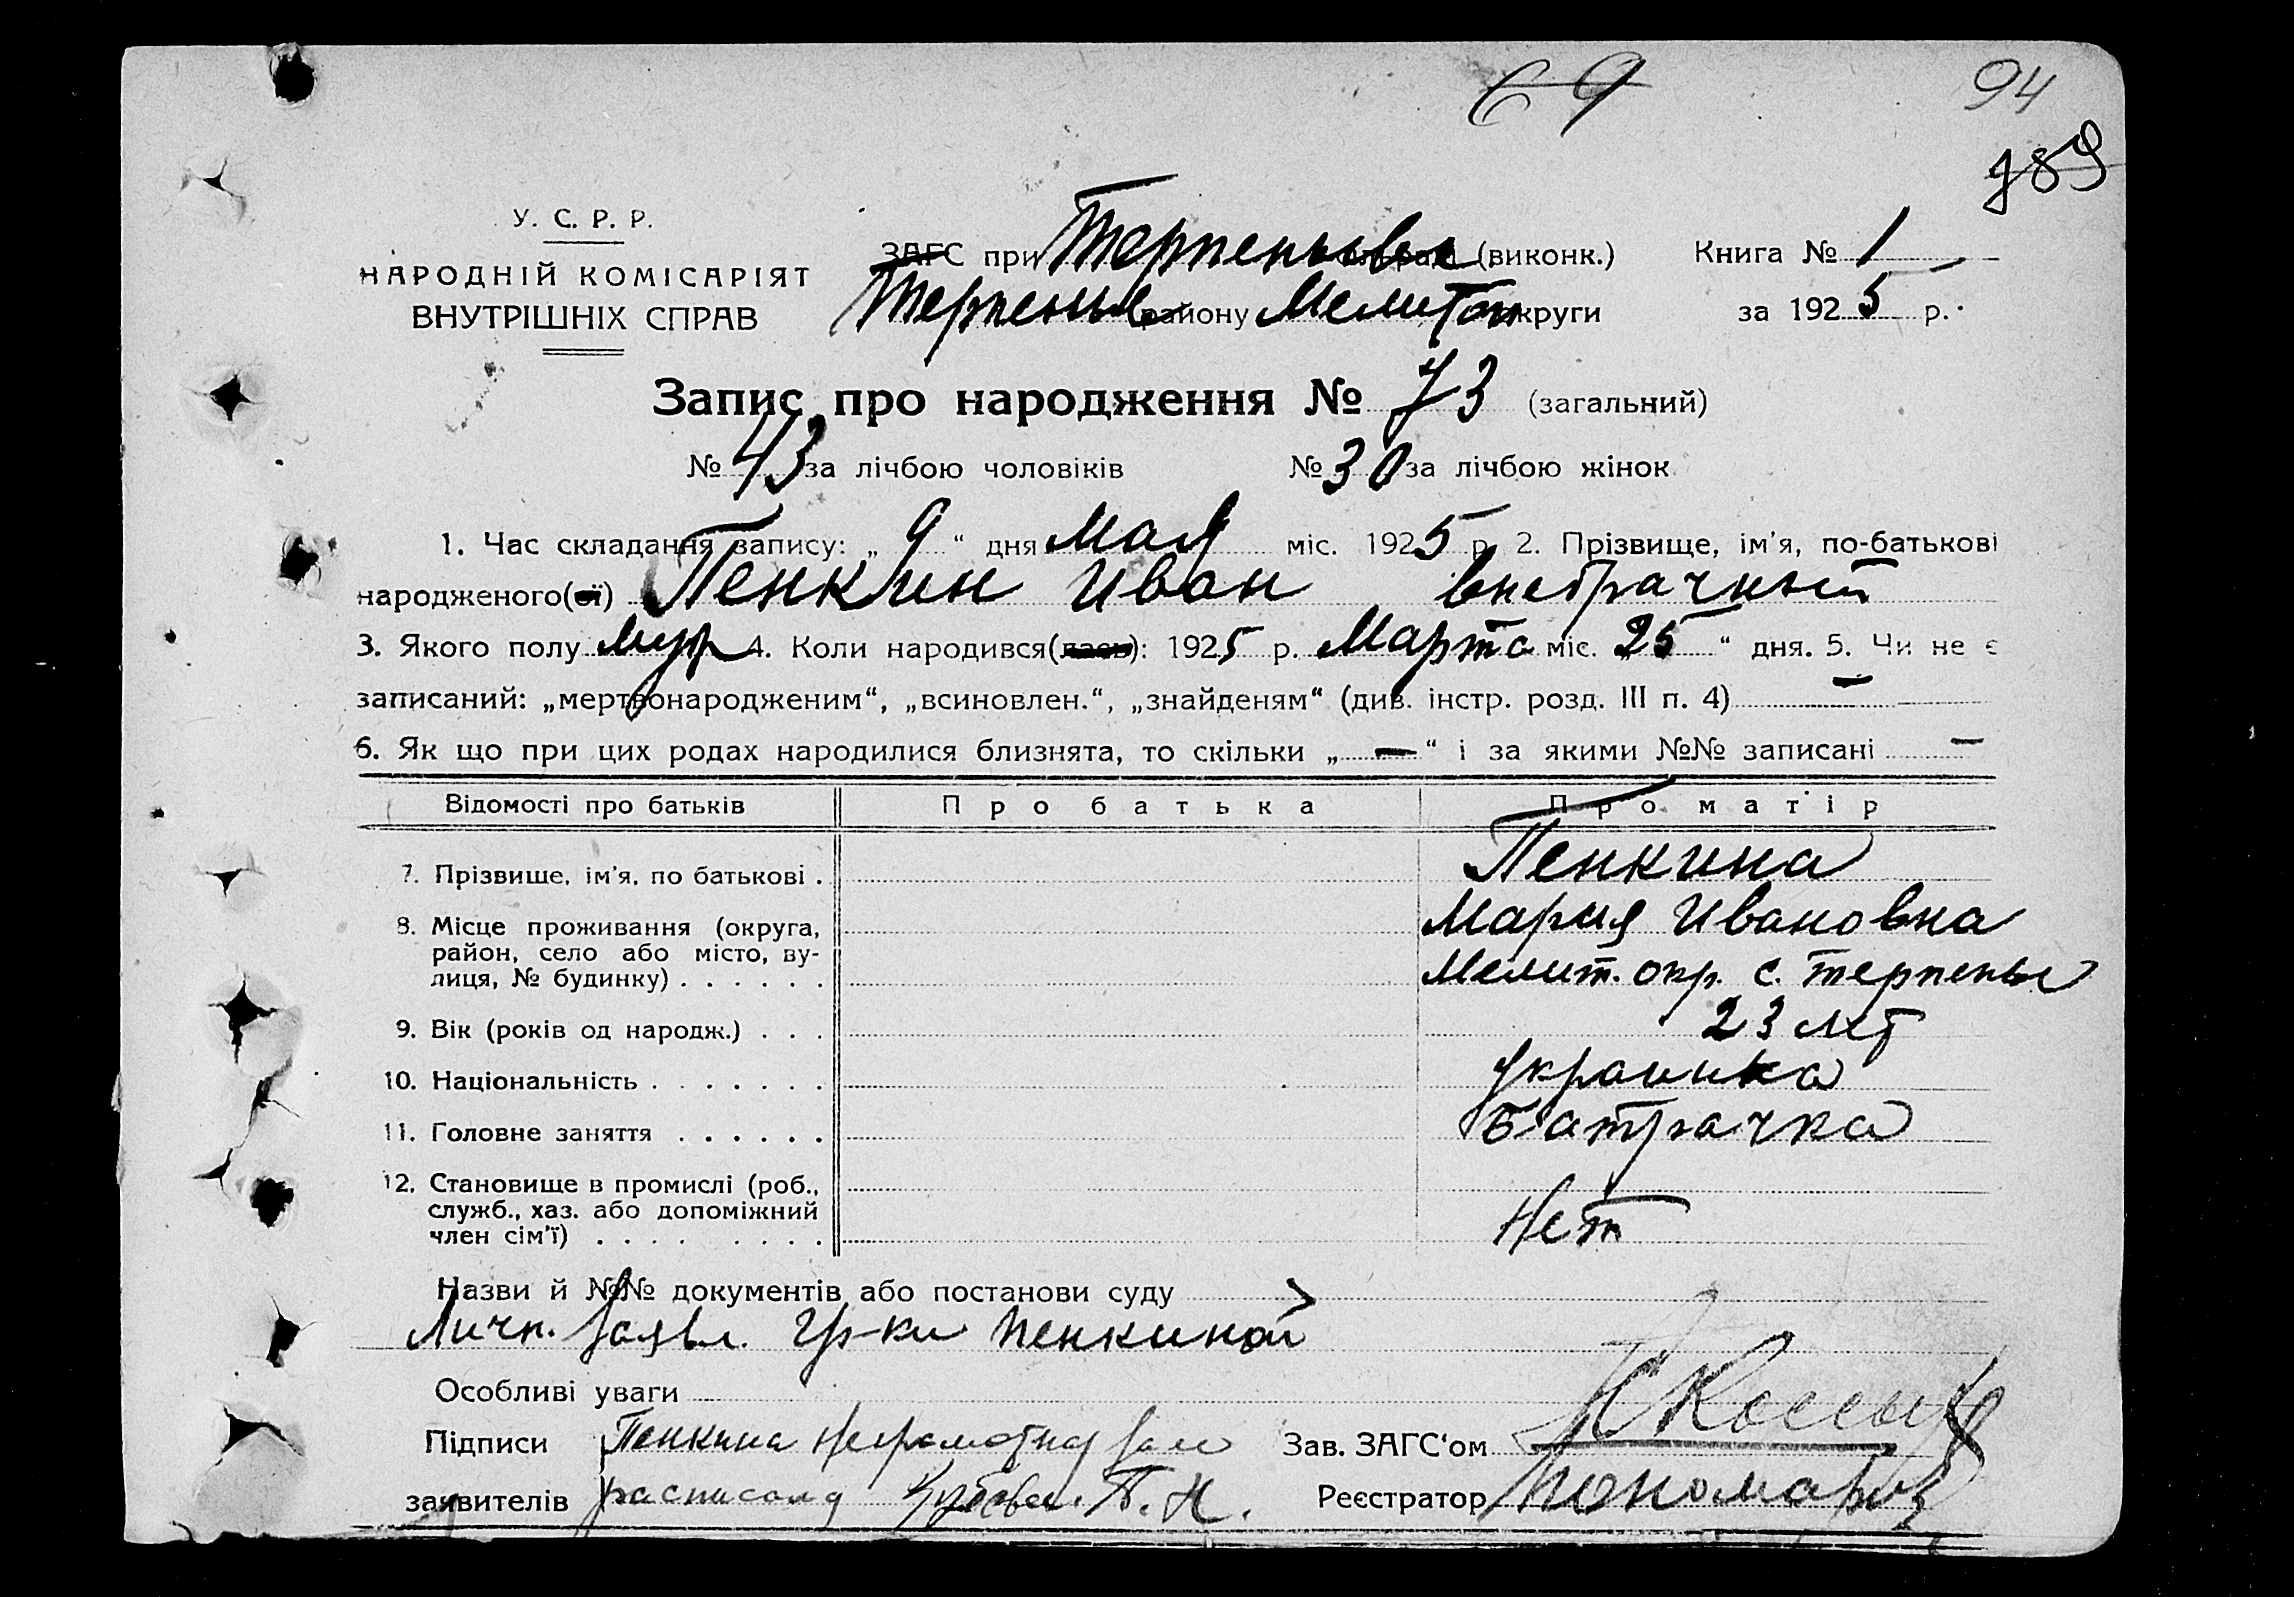 69 94
789
У. С. Р. Р.
НАРОДНІЙ КОМІСАРІЯТ
ВНУТРІШНІХ СПРАВ
ЗАГС при Терпеньевск (виконк.) Книга № 1
Терпенье району Мелитоп округи за 1925 р.
Запис про народження № 73 (загальний)
№ 43 за лічбою чоловіків № 30 за лічбою жінок
1. Час складання запису: „ 9 “ дня Мая міс. 1925 р. 2. Прізвище, ім'я, по-батькові
народженого(ої) Пенкин Иван внебрачный
3. Якого полу Муж 4. Коли народився(лась): 1925 р. Марта міс. „ 25 “ дня. 5. Чи не є
записаний: „мертвонародженим“, „всиновлен.“, „знайденям“ (див. інстр. розд. III п. 4) —
6. Як що при цих родах народилися близнята, то скільки „ — “ і за якими №№ записані —
Відомості про батьків Про батька Про матір
7. Прізвище, ім'я, по батькові . Пенкина
Мария Ивановна
8. Місце проживання (округа,
район, село або місто, ву-
лиця, № будинку) . . . . . . Мелит. окр. с. Терпенье
9. Вік (років од народж.) . . . 23 лет
10. Національність . . . . . . . Украинка
11. Головне заняття . . . . . . Батрачка
12. Становище в промислі (роб.,
служб., хаз. або допоміжний
член сім'ї) . . . . . . . . Нет
Назви й №№ документів або постанови суду
Личн. заявл. гр-ки Пенкиной
Особливі уваги
Підписи Пенкина неграмотная за нее Зав. ЗАГС'ом
заявителів расписался Т. Н. Реєстратор Пономарев